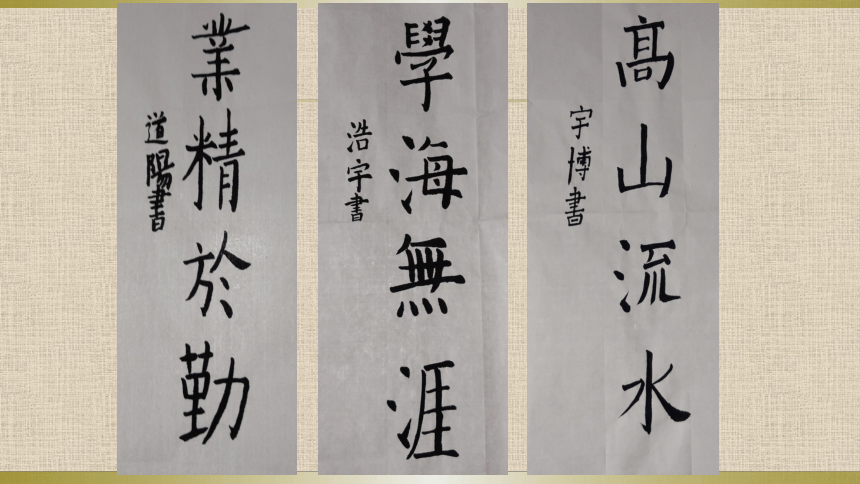 高山流水
宇博書
學海無涯
浩宇書
業精於勤
道陽書